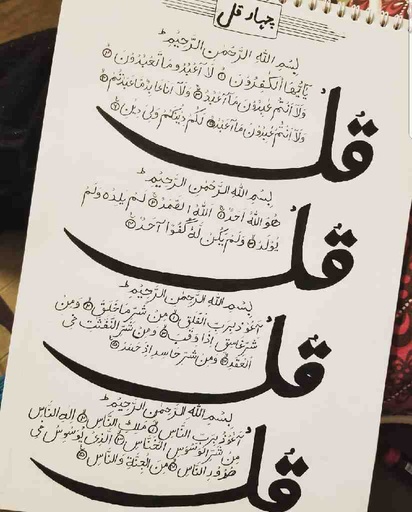 چہار قل
بِسْمِ اللهِ الرَّحْمٰنِ الرَّحِيْمِ
قُلْ
يٰاَيُّهَا الْكٰفِرُوْنَ ۝ لَا اَعْبُدُ مَا تَعْبُدُوْنَ ۝
وَلَا اَنْتُمْ عٰبِدُوْنَ مَا اَعْبُدُ ۝ وَلَا اَنَا عَابِدٌ مَّا عَبَدْتُّمْ ۝
وَلَا اَنْتُمْ عٰبِدُوْنَ مَا اَعْبُدُ ۝ لَكُمْ دِيْنُكُمْ وَلِيَ دِيْنِ ۝
بِسْمِ اللهِ الرَّحْمٰنِ الرَّحِيْمِ
قُلْ
هُوَ اللهُ اَحَدٌ ۝ اَللهُ الصَّمَدُ ۝ لَمْ يَلِدْ وَلَمْ
يُوْلَدْ ۝ وَلَمْ يَكُنْ لَّهٗ كُفُوًا اَحَدٌ ۝
بِسْمِ اللهِ الرَّحْمٰنِ الرَّحِيْمِ
قُلْ
اَعُوْذُ بِرَبِّ الْفَلَقِ ۝ مِنْ شَرِّ مَا خَلَقَ ۝ وَمِنْ
شَرِّ غَاسِقٍ اِذَا وَقَبَ ۝ وَمِنْ شَرِّ النَّفّٰثٰتِ فِي
الْعُقَدِ ۝ وَمِنْ شَرِّ حَاسِدٍ اِذَا حَسَدَ ۝
بِسْمِ اللهِ الرَّحْمٰنِ الرَّحِيْمِ
قُلْ
اَعُوْذُ بِرَبِّ النَّاسِ ۝ مَلِكِ النَّاسِ ۝ اِلٰهِ النَّاسِ
مِنْ شَرِّ الْوَسْوَاسِ الْخَنَّاسِ ۝ الَّذِيْ يُوَسْوِسُ فِي
صُدُوْرِ النَّاسِ ۝ مِنَ الْجِنَّةِ وَالنَّاسِ ۝